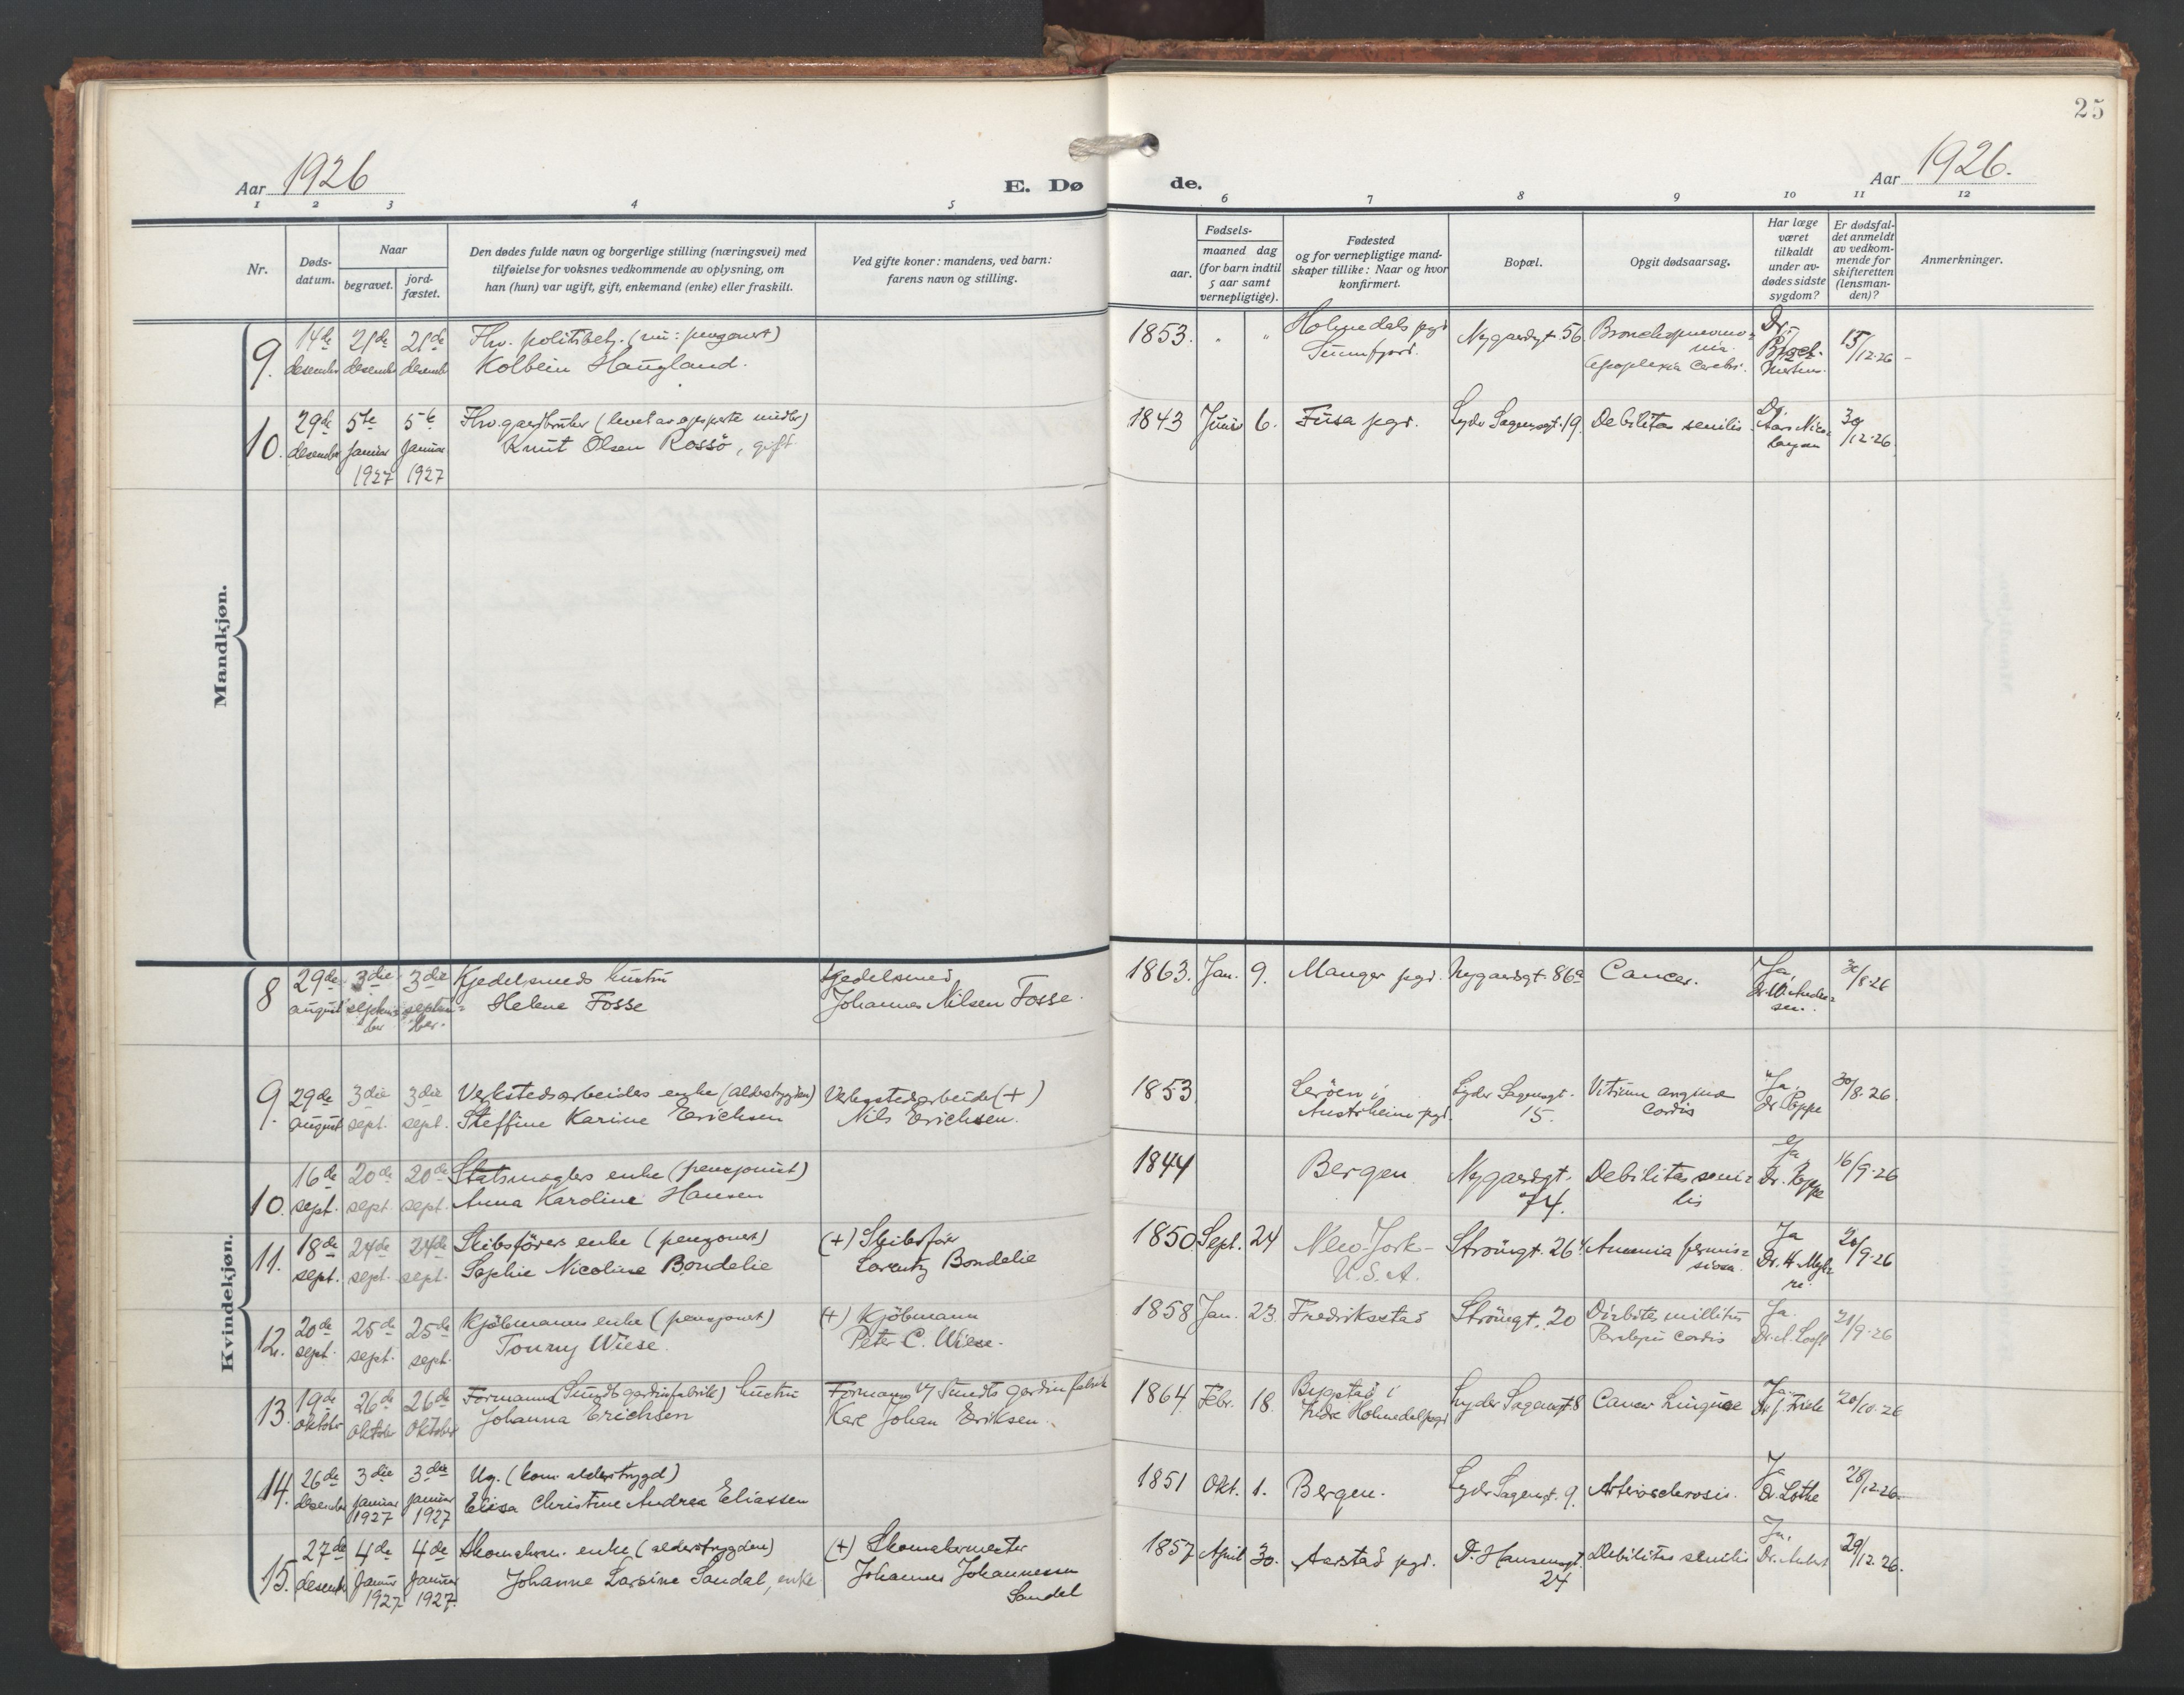 25
Aar 1926
E. Dø
de.
Aar 1926.
1 2 3 4 5 6 7 8 9 10 11 12
Nr.
Døds-
datum.
Naar
begravet.
jord-
fæstet.
Den dødes fulde navn og borgerlige stilling (næringsvei) med
tilføielse for voksnes vedkommende av oplysning, om
han (hun) var ugift, gift, enkemand (enke) eller fraskilt.
Ved gifte koner: mandens, ved barn:
farens navn og stilling.
Fødsels-
aar.
maaned dag
(for barn indtil
5 aar samt
vernepligtige).
Fødested
og for vernepligtige mand-
skaper tillike: Naar og hvor
konfirmert.
Bopæl.
Opgit dødsaarsag.
Har læge
været
tilkaldt
under av-
dødes sidste
sygdom?
Er dødsfal-
det anmeldt
av vedkom-
mende for
skifteretten
(lensman-
den)?
Anmerkninger.
Mandkjøn.
9. 14de desember 21de desember 21de desemb
Fhv. politibetj. (nu: pensjonert)
Kolbein Haugland.
1853. " "
Holmedals pgd
Sunnfjord.
Nygaardsgt. 56.
Bronchopneumo-
nia.
Apoplexia cerebri.
Dr.
15/12-26
10. 29de desember 5te januar 1927 5te januar 1927
Fhv. gaardbruker (levet av opsparte midler)
Knut Olsen Rossö, gift
1843 Juni 6.
Fusa pgd.
Lyder Sagensgt. 19.
Debilitas senilis
Dr.
30/12-26.
Kvindekjøn.
8 29de august 3die septem-
ber 3die septem-
ber.
Kjedelsmeds hustru
Helene Fosse
Kjedelsmed
Johannes Nilsen Fosse.
1863. Jan. 9.
Manger pgd.
Nygaardsgt. 86a
Cancer.
Ja,
Dr. W. Ander-
sen.
30/8-26
9. 29de august 3die sept. 3die sept.
Verkstedsarbeiders enke (alderstrygden)
Steffine Karine Erichsen
Verkstedsarbeider (+)
Nils Erichsen.
1853
Austrheim pgd.
Lyder Sagensgt.
15.
Vitium angina
cordis
Ja,
Dr. Poppe
30/8-26.
10. 16de sept. 20de sept. 20de sept.
enke (pensjonist)
Anna Karoline Hansen
1844
Bergen
Nygaardsgt.
74.
Debilitas seni-
lis
Ja,
Dr. Poppe
16/9-26
11. 18de sept. 24de sept. 24de sept.
Skibsförers enke (pensjonert)
Sophie Nicoline Bondelie
(+) Skibsförer
Lorentz Bondelie
1850 Sept. 24
New-York -
U.S.A.
Strömgt. 26
Anemia pernici-
siosa.
Ja
20/9-26
12. 20de sept. 25de sept. 25de sept.
Kjöbmanns enke (pensjonert)
Tonny Wiese.
(+) Kjöbmann
Peter C. Wiese.
1858 Jan. 23.
Fredriksstad
Strömgt. 20
Diabites millitus
Paralysis cordis
Ja.
Dr. A. Looft
21/9-26
13. 19de oktober 26de oktober 26de oktober
Formanns (Sundts gardinfabrik) hustru
Johanna Erichsen
Formann v/ Sundts gardinfabrik
Karl Johan Eriksen.
1864 Febr. 18.
Bygstad i
Indre Holmedal pgd
Lyder Sagensgt. 8
Cancer Linguae
Ja.
20/10-26
14. 26de desember 3die januar 1927 3die januar 1927
Ug. (kom. alderstrygd)
Elisa Christine Andrea Eliassen
1851 Okt. 1.
Bergen.
Lyder Sagensgt. 9.
Arteriosclerosis.
Ja
Dr. Lothe
28/12-26.
15. 27de desemb 4de januar 1927 4de januar 1927.
Skomakerm. enke (alderstrygden)
Johanne Larsine Sandal, enke
(+) Skomakermester
Johannes Johannessen
Sandal
1857 April 30.
Aarstad pgd.
D. Hansensgt.
24
Debilitas senilis
Ja,
29/12-26.